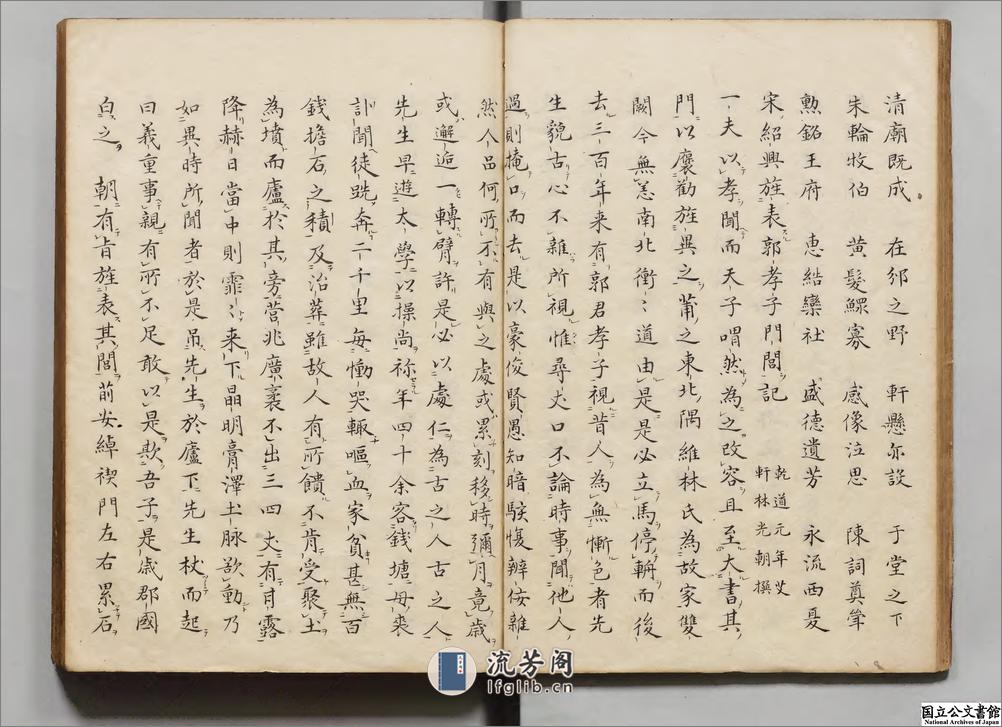 清廟既成　在郊之野　軒懸亦設　于堂之下
朱輪牧伯　黃髮鰥寡　感像泣思　陳詞奠斝
勲銘王府　恵結欒社　盛德遺芳　永流西夏
宋紹興旌表郭孝子門閭記　乾道元年艾軒林光朝撰
一夫以孝聞而天子喟然為之改容且至大書其
門以襃勸旌異之莆之東北隅維林氏為故家雙
闕今無恙南北衝〻道由是是必立馬停軿而後
去三百年来有郭君孝子視昔人為無慚色者先
生貌古心不雜所視惟尋丈口不論時事聞他人
過則掩口而去是以豪俊賢愚知暗騃愎辨佞雜
然人品何所不有與之處或累刻移時彌月竟歳
或邂逅一轉臂許是必以處仁為古之人古之人
先生早遊太學以操尚祢年四十余客錢塘母喪
訃聞徒跣奔二千里毎慟哭輙嘔血家貧甚無百
錢擔石之積及治葬雖故人有所饋不肯受聚土
為墳而廬於其旁营兆廣袤不出三四丈有甘露
降赫日當中則霏〻来下晶明膏澤土脉欲動乃
如異時所聞者於是吊先生於廬下先生杖而起
曰義重事親有所不足敢以是欺吾子是歳郡國
白之　朝有旨旌表其閭前安綽禊門左右累石
流芳阁
lfglib.cn
国立公文書館
National Archives of Japan